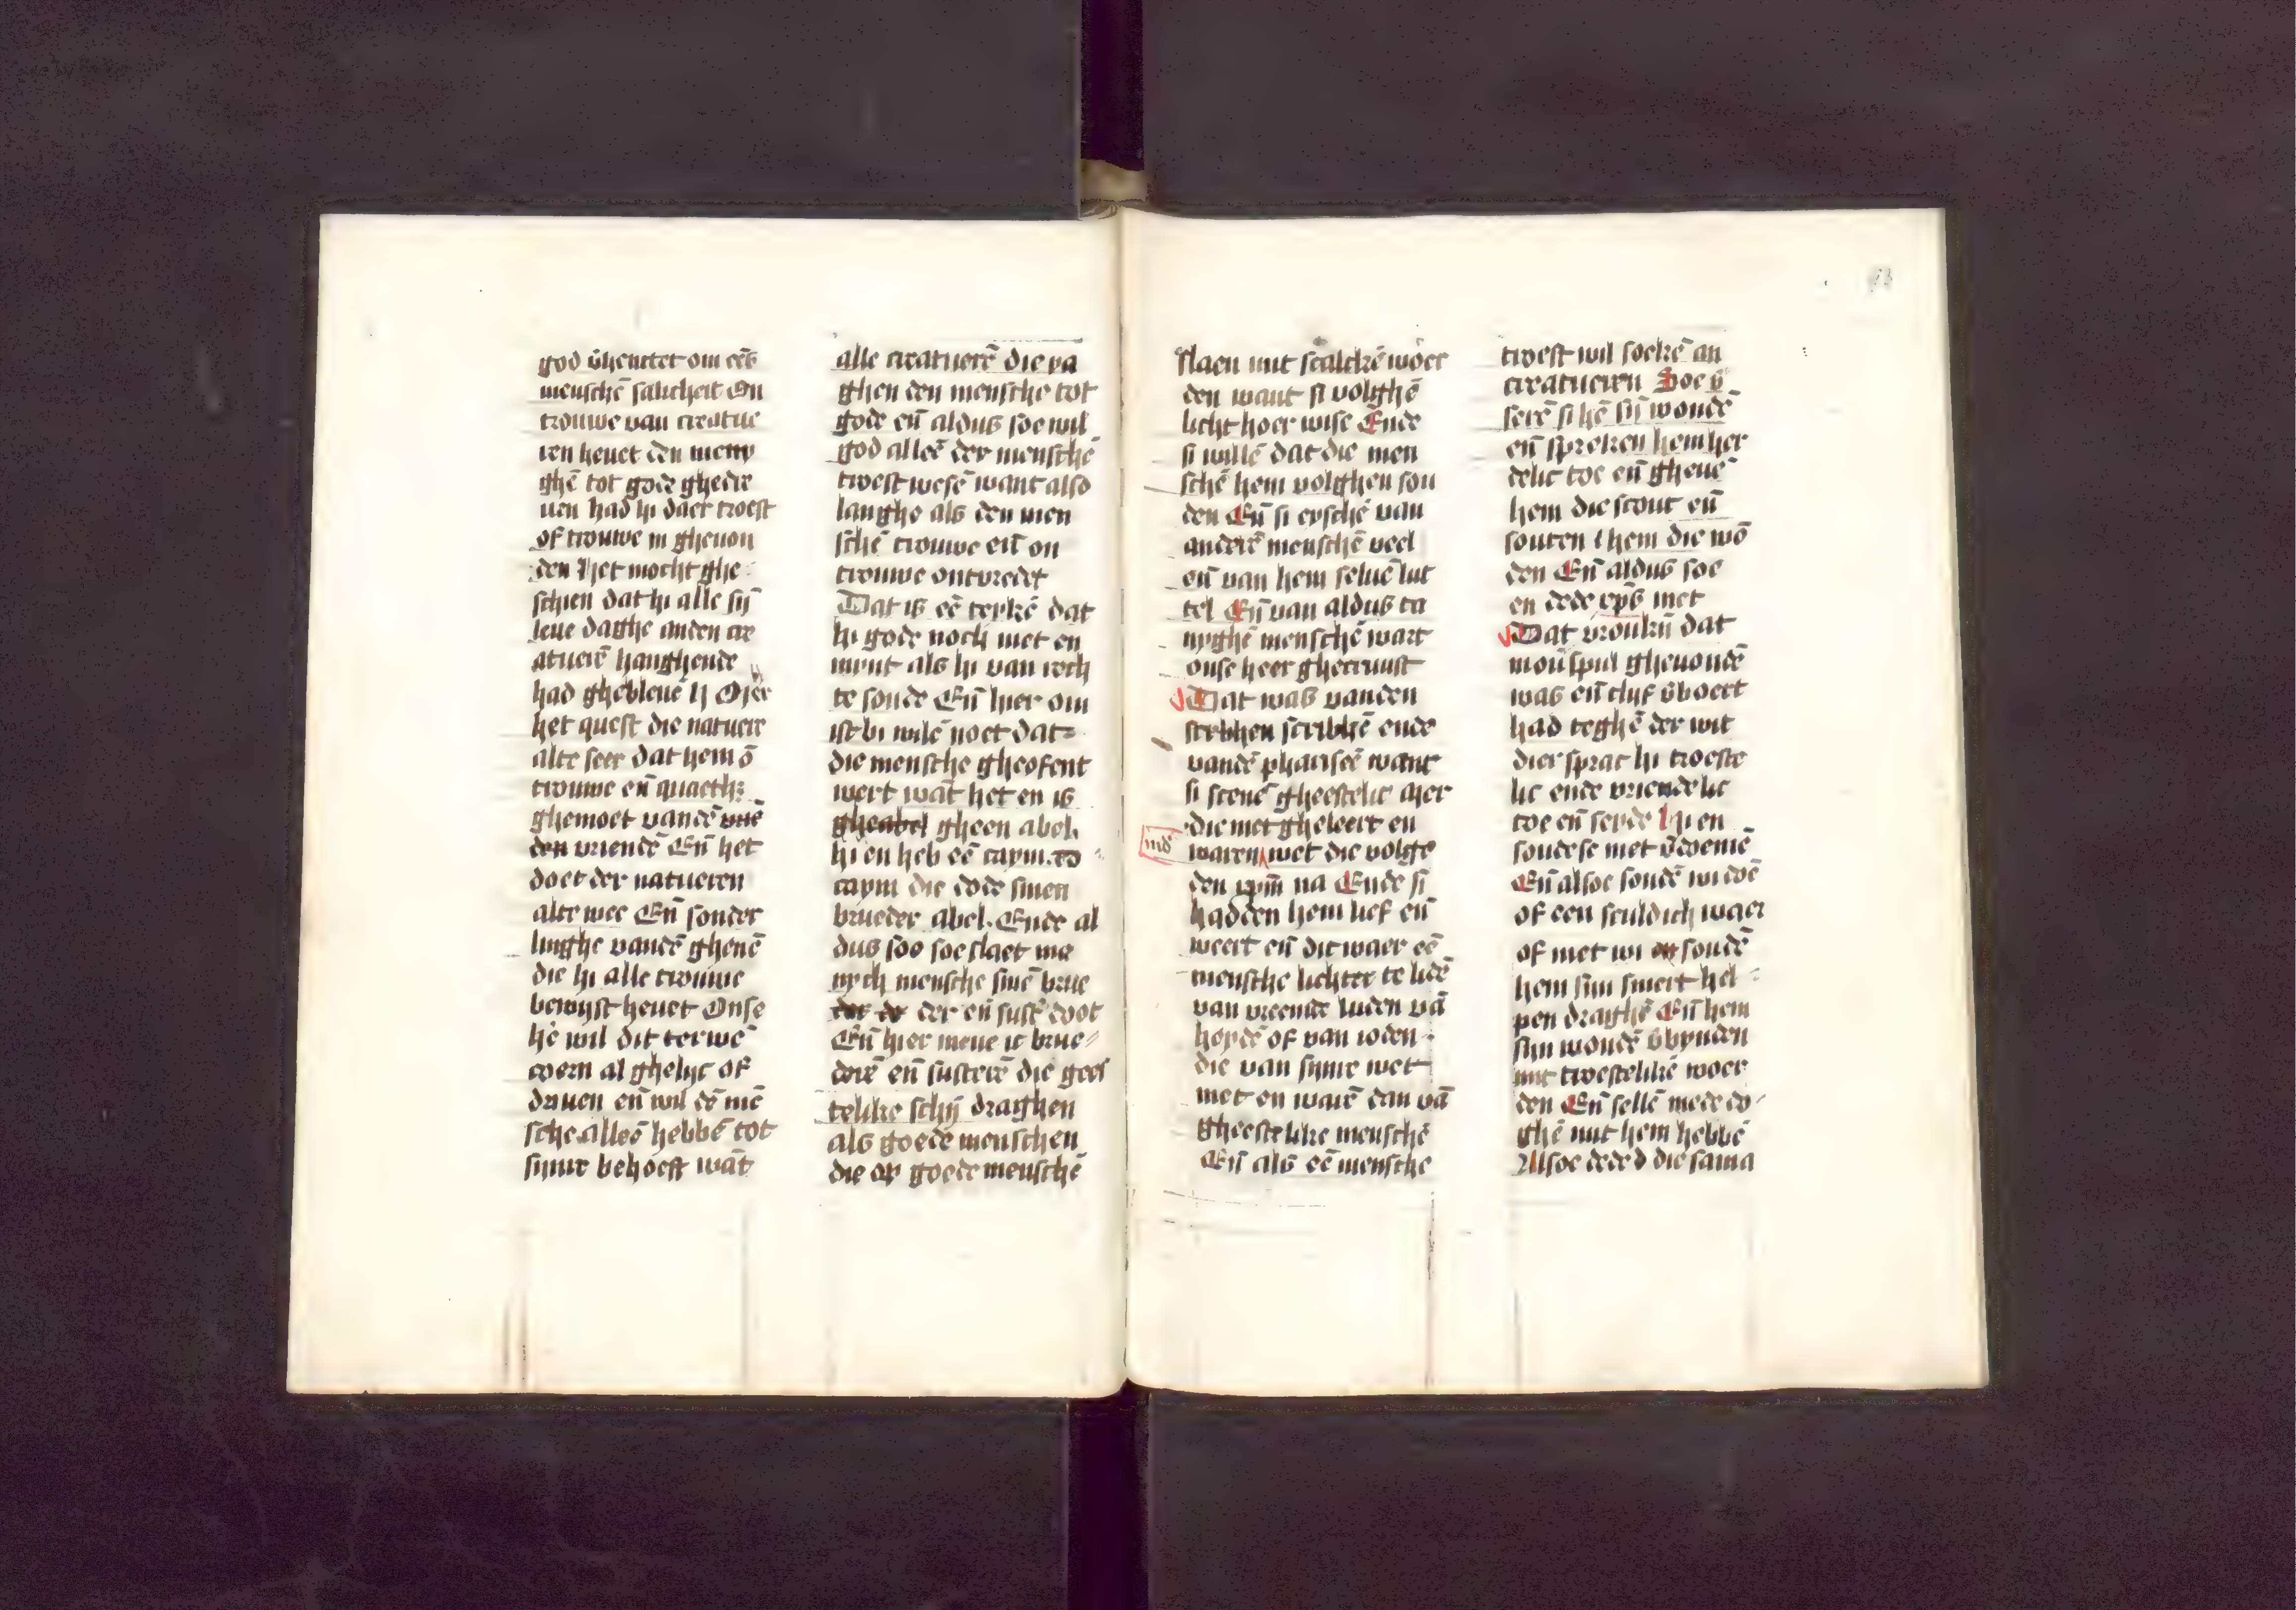 god v̄henctet om eēs
menschē salicheit On
trouwe van creatue
ren heuet den meny
ghē tot gode ghedre
uen had hi daer troest
of trouwe in gheuon
den Het mocht ghe
schien dat hi alle sij̄
leue daghe anden cre
atuerē hanghende
had ghebleuē
het quest die natuere
alte seer dat hem ō
trouwe en̄ quaeth
ghemoet vandē vriē
den vriendē En̄ het
doet der natueren
alte wee En̄ sonder
linghe vandē ghenē
die hi alle trouwe
bewyst heuet Onse
hē wil dit terwē
coern al ghelyc of
driuen en̄ wil dē mē
sche alleē hebbē tot
synre behoeft wāt
alle creatuerē die ia
ghen den mensche tot
gode en̄ aldus soe wil
god alleē der menschē
troest wesē want also
langhe als den men
schē trouwe en̄ on
trouwe ontvredet
Dat is eē teykē dat
hi gode noch niet en
mynt als hi van rech
te soude En̄ hier om
ist bi wilē noet dat
die mensche gheofent
wert wāt het en is
gheabel gheen abel
hi en heb eē caym
caym die dode sinen
brueder abel. Ende al
dus soe soe slaet me
nych mensche sinē brue
der de der en̄ sust' doot
En̄ hier mene ic brue
derē en̄ susterē die gees
telike schij̄ draghen
als goede menschen
die op goede menschē
slaen mit scalckē woer
den want si volghē
licht hoer wise Ende
si willē dat die men
schē hem volghen sou
den En̄ si eyschē van
anderē menschē veel
en̄ van hem seluē lut
tel En̄ van aldus ta
nyghē menschē wart
onse heer ghecruust
Dat was vanden
stribhen scribkē ende
vandē phariseē want
si scenē gheestelic mer
die niet gheleert en
waren wet die volge
den na Ende si
hadden hem lief en̄
weert en̄ dit waer eē
mensche lichter te lidē
van vreemde luden vā
heydē of van ioden
die van synre wet
niet en warē dan vā
gheestelike menschē
En̄ als eē mensche
troest wil soekē an
creatueren Soe v̄
serē si hē sij̄ wondē
en̄ spreken hem her
delic toe en̄ gheuē
hem die scout en̄
souten hem die wō
den En̄ aldus soe
en dede xp̄s niet
Dat vroukij̄ dat
in ou'spul gheuondē
was en̄ tlyf v̄boert
had teghē der wit
dier sprac hi troeste
lic ende vriendelic
toe en̄ seyde Hi en
soudese niet v̄doemē
En̄ alsoe soudē wi doē
of een sculdich waer
of niet wi en soudē
hem sijn smert hel
pen draghē En̄ hem
sijn wondē v̄bynden
mit troestelikē woer
den En̄ sellē mededo
ghē mit hem hebbē
Alsoe dede d die sama